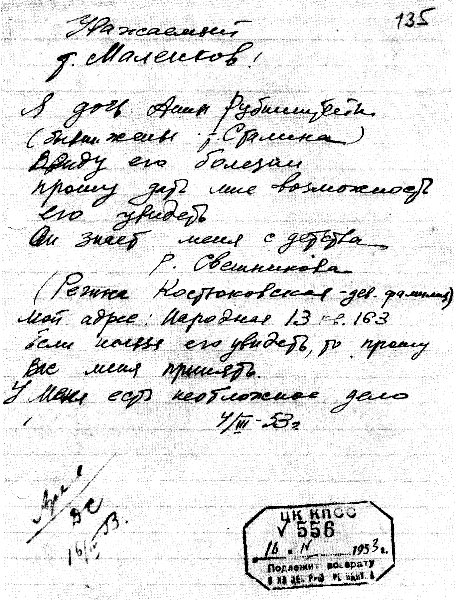 135
Уважаемый
т. Маленков!
Я дочь Анны Рубинштейн
(бывш. жены т. Сталина)
Ввиду его болезни
прошу дать мне возможность
его увидеть
Он знает меня с детства
Р. Свешникова
(Регина Костюковская - дев. фамилия)
Мой адрес: Народная 13 кв. 163
Если нельзя его увидеть, то прошу
Вас меня принять.
У меня есть неотложное дело
4/III-53г
Архив
16/IV 53.
ЦК КПСС
556
16 IV 1953 г.
Подлежит возврату